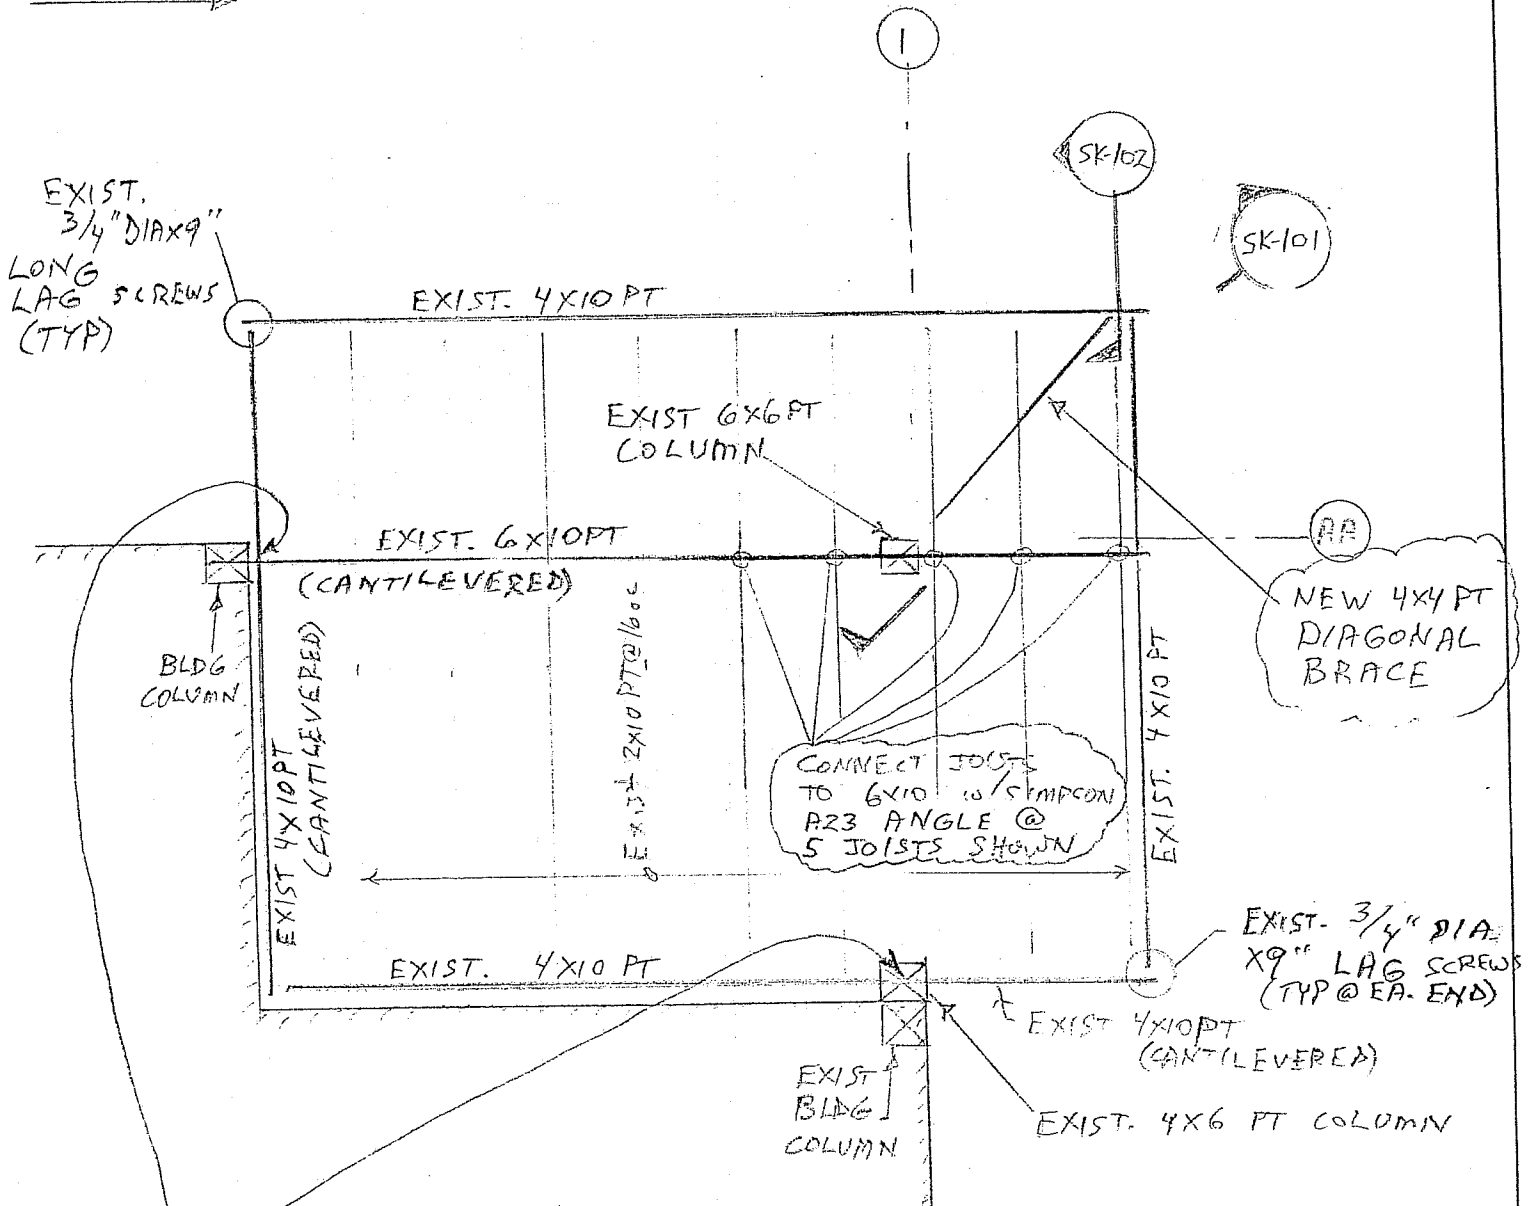 1
SK-102
SK-101
EXIST.
3/4" DIAX9"
LONG
LAG SCREWS
(TYP)
EXIST. 4X10 PT
EXIST 6X6 PT
COLUMN
EXIST. 6X10PT
(CANTILEVERED)
AA
NEW 4X4 PT
DIAGONAL
BRACE
BLDG
COLUMN
EXIST 4X10PT
(CANTILEVERED)
EXIST 2X10 PT@16oc
EXIST. 4X10 PT
CONNECT JOISTS
TO 6X10 W/SIMPSON
A23 ANGLE @
5 JOISTS SHOWN
EXIST. 4X10 PT
EXIST. 3/4" DIA
X9" LAG SCREWS
(TYP @ EA. END)
EXIST 4X10PT
(CANTILEVERED)
EXIST
BLDG
COLUMN
EXIST. 4X6 PT COLUMN